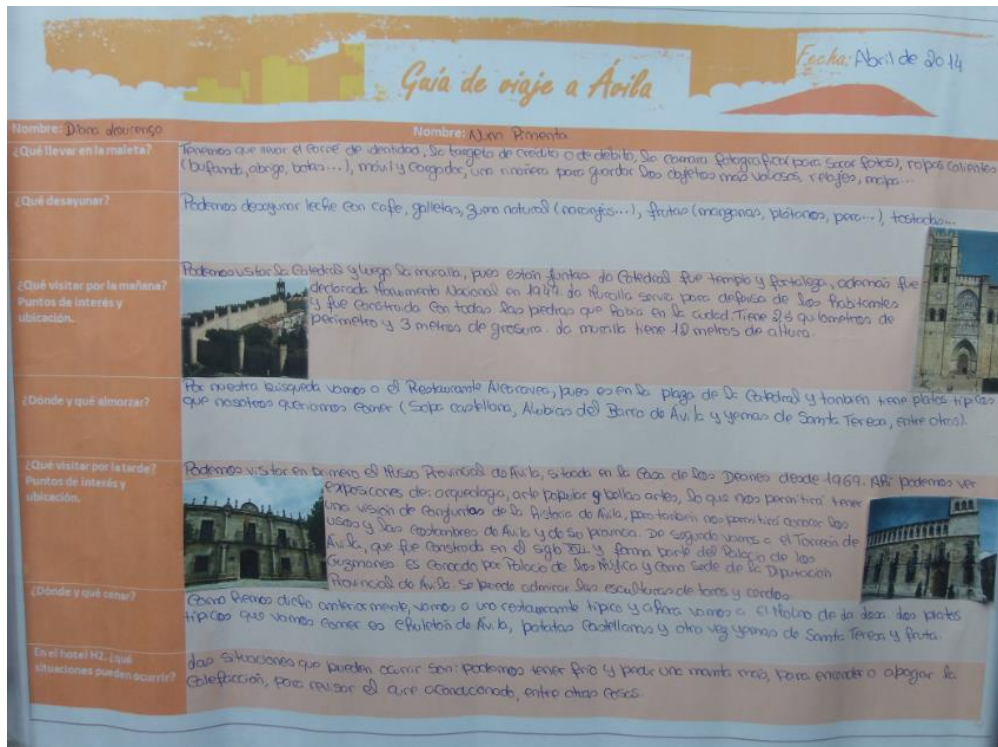 Guía de viaje a Ávila
Fecha: Abril de 2014
Nombre: Diana Lourenço
Nombre: Nuno Pimenta
¿Qué llevar en la maleta?
Tenemos que llevar el carné de identidad, la targeta de crédito o de débito, la camara fotografica (para sacar fotos), ropas calientes
(bufanda, abrigo, botas...), móvil y cargador, una riñonera para guardar los objetos más valiosos, relojes, mapa...
¿Qué desayunar?
Podemos desayunar leche con cafe, galletas, zumo natural (naranjas...), frutas (manzanas, plátanos, pera...), tostadas...
¿Qué visitar por la mañana?
Puntos de interés y
ubicación.
Podemos visitar la Catedral y luego la muralla, pues están juntas. La Catedral fue templo y fortaleza, además fue
declarada Monumento Nacional en La Muralla servia para defensa de los habitantes
y fue construida con todas las piedras que habia en la ciudad. Tiene 2,5 quilometros de
perímetro y 3 metros de grosura. La muralla tiene 12 metros de altura.
¿Dónde y qué almorzar?
Por nuestra búsqueda vamos a el Restaurante Alcaravea, pues es en la plaza de la Catedral y también tiene platos tipicos
que nosotros queriamos comer (Sopa castellana, Alubias del Barco de Ávila y yemas de Santa Teresa, entre otros).
¿Qué visitar por la tarde?
Puntos de interés y
ubicación.
Podemos visitar en primero el Museo Provincial de Ávila, situado en la Casa de los Deanes desde 1969. Allí podemos ver
exposiciones de: arqueologia, arte popular y bellas artes, lo que nos permitirá tener
una visión de conjuntas de la historia de Ávila, pero también nos permitirá conocer los
usos y las costumbres de Ávila y de su provincia. De segundo vamos a el Torreón de
Ávila, que fue construido en el siglo XVI y forma parte del Palacio de los
Guzmanes es conocido por Palacio de los Mújica y como sede de la Diputación
Provincial de Ávila. Se puede admirar las esculturas de toros y cerdos.
¿Dónde y qué cenar?
Como hemos dicho anteriormente, vamos a uno restaurante tipico y ahora vamos a el Molino de la Losa. Los platos
tipicos que vamos comer es chuletón de Ávila, patatas castellanas y otra vez yemas de Santa Teresa y fruta.
En el hotel H2, ¿qué
situaciones pueden ocurrir?
Las situaciones que pueden ocurrir son: podemos tener frio y pedir una manta más, para encender o apagar la
calefacción, para revisar el aire acondicionado, entre otras cosas.